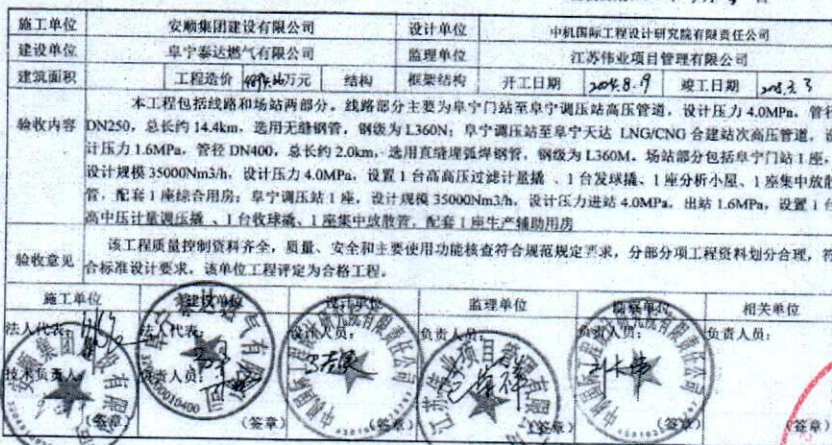 施工单位 安顺集团建设有限公司 设计单位 中机国际工程设计研究院有限责任公司
建设单位 阜宁泰达燃气有限公司 监理单位 江苏伟业项目管理有限公司
建筑面积 工程造价 万元 结构 框架结构 开工日期 8.9 竣工日期
验收内容
本工程包括线路和场站两部分。线路部分主要为阜宁门站至阜宁调压站高压管道，设计压力 4.0MPa，管径
DN250，总长约 14.4km，选用无缝钢管，钢级为 L360N；阜宁调压站至阜宁天达 LNG/CNG 合建站次高压管道，设
计压力 1.6MPa，管径 DN400，总长约 2.0km，选用直缝埋弧焊钢管，钢级为 L360M。场站部分包括阜宁门站 1 座，
设计规模 35000Nm3/h，设计压力 4.0MPa，设置 1 台高高压过滤计量撬 、1 台发球撬、1 座分析小屋、1 座集中放散
管，配套 1 座综合用房；阜宁调压站 1 座，设计规模 35000Nm3/h，设计压力进站 4.0MPa，出站 1.6MPa，设置 1 台
高中压计量调压撬 、1 台收球撬、1 座集中放散管，配套 1 座生产辅助用房
验收意见
该工程质量控制资料齐全，质量、安全和主要使用功能核查符合规范规定要求，分部分项工程资料划分合理，符
合标准设计要求，该单位工程评定为合格工程。
施工单位 建设单位 设计单位 监理单位 单位 相关单位
法人代表： 法人代表： 设计人员： 负责人员： 负责人员： 负责人员：
技术负责人 负责人员：
（签章） （签章） （签章） （签章） （签章） （签章）